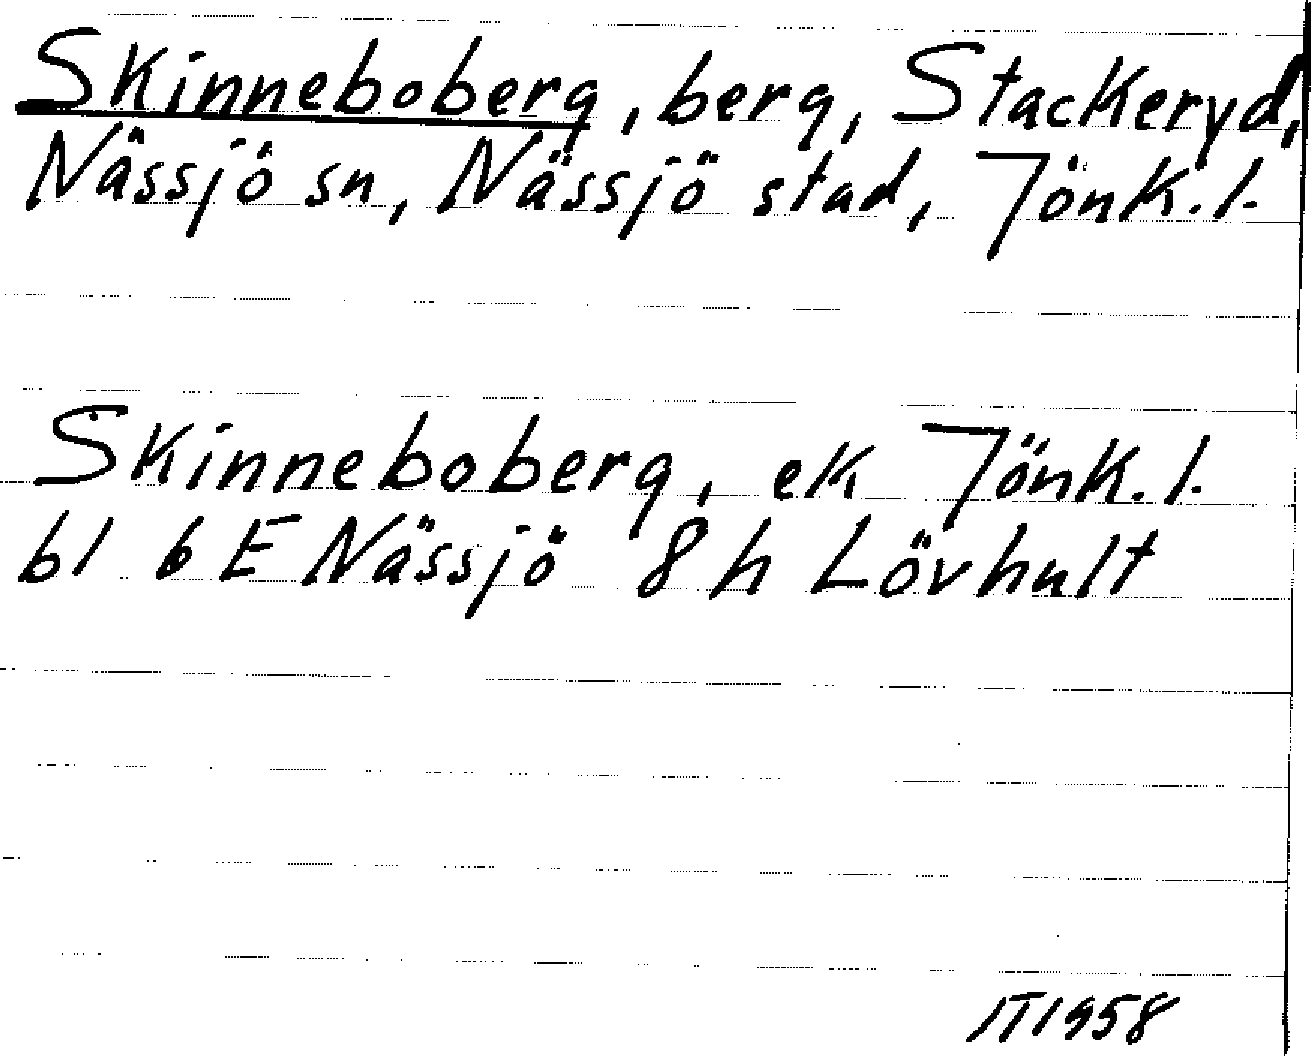 Skinneboberg, berg, Stackeryd,
Nässjö sn, Nässjö stad, Jönk.l.
Skinneboberg, ek Jönk.l.
bl 6 E Nässjö 8 h Lövhult
IT 1958